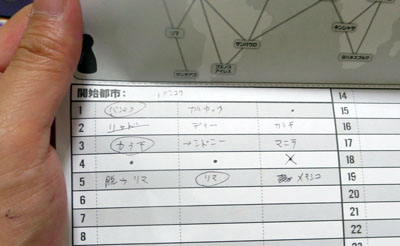 リマ
サンパウロ
キンシャサ
ブエノスアイレス
ヨハネスブルグ
サンチアゴ
開始都市: バンコク 14
1 バンコク カルカッタ ・ 15
2 リヤド デリー カラチ 16
3 カラチ シドニー マニラ 17
4 ・ ・ 18
5 脱→リマ リマ メキシコ 19
6 20
7 21
8 22
9 23